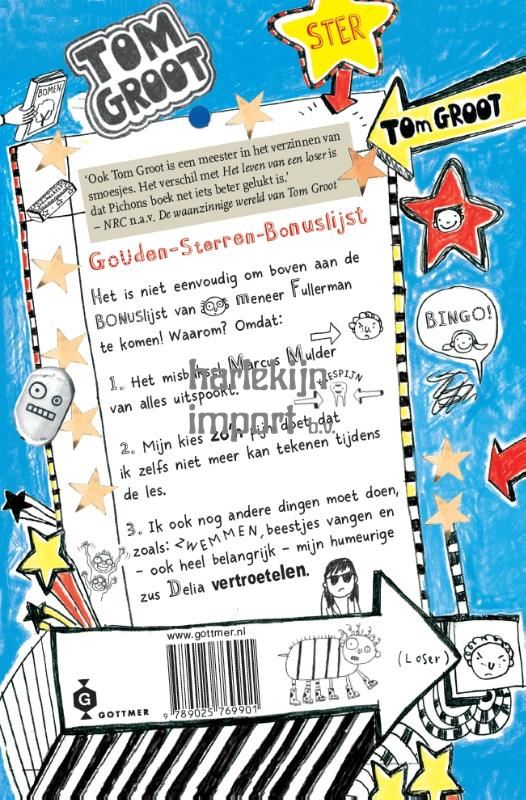 TOM
GROOT
STER
BOMEN
TOM GROOT
'Ook Tom Groot is een meester in het verzinnen van
smoesjes. Het verschil met Het leven van een loser is
dat Pichons boek net iets beter gelukt is.'
– NRC n.a.v. De waanzinnige wereld van Tom Groot
Gouden-Sterren-Bonuslijst
Het is niet eenvoudig om boven aan de
BONUSlijst van meneer Fullerman
te komen! Waarom? Omdat:
BINGO!
1. Het misbaksel Marcus Mulder
van alles uitspookt.
KIESPIJN
harlekijn
import b.v.
2. Mijn kies zo'n pijn doet dat
ik zelfs niet meer kan tekenen tijdens
de les.
3. Ik ook nog andere dingen moet doen,
zoals: ZWEMMEN, beestjes vangen en
– ook heel belangrijk – mijn humeurige
zus Delia vertroetelen.
www.gottmer.nl
(Loser)
G
GOTTMER
9 789025 769901